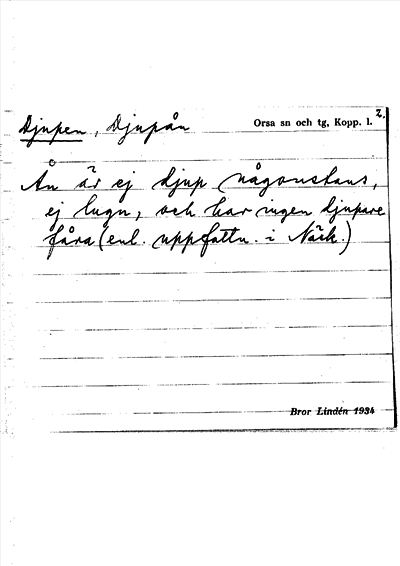 Djupen, Djupån
Orsa sn och tg, Kopp. l. 2.
Ån är ej djup någonstans,
ej lugn, och har ingen djupare
fåra (enl. uppfattn. i Näck.)
Bror Lindén 1934